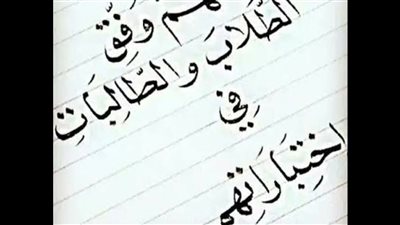 وَفِّقْ
الطُّلَابَ وَالطَّالِبَاتِ
فِي
اخْتِبَارَاتِهِم